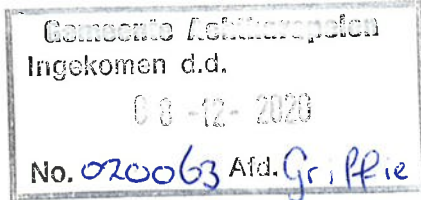 Gemeente Achtkarspelen
Ingekomen d.d.
08 -12- 2020
No. 020063 Afd. Griffie